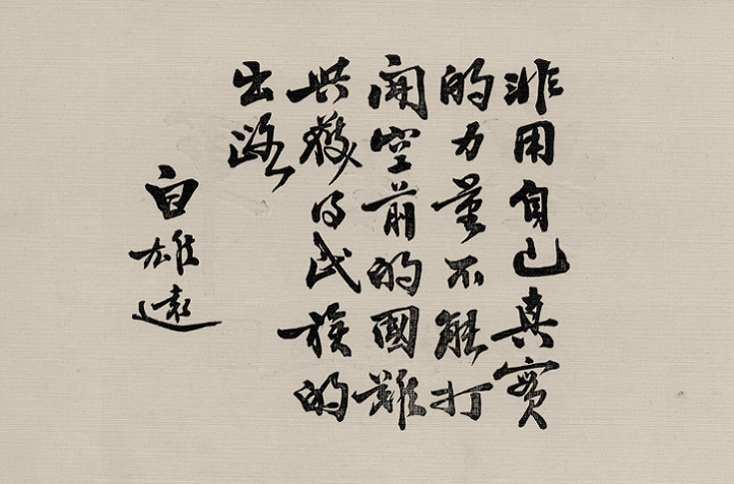 非用自己真實
的力量不能打
開空前的國難
與獲得民族的
出路
白雄遠